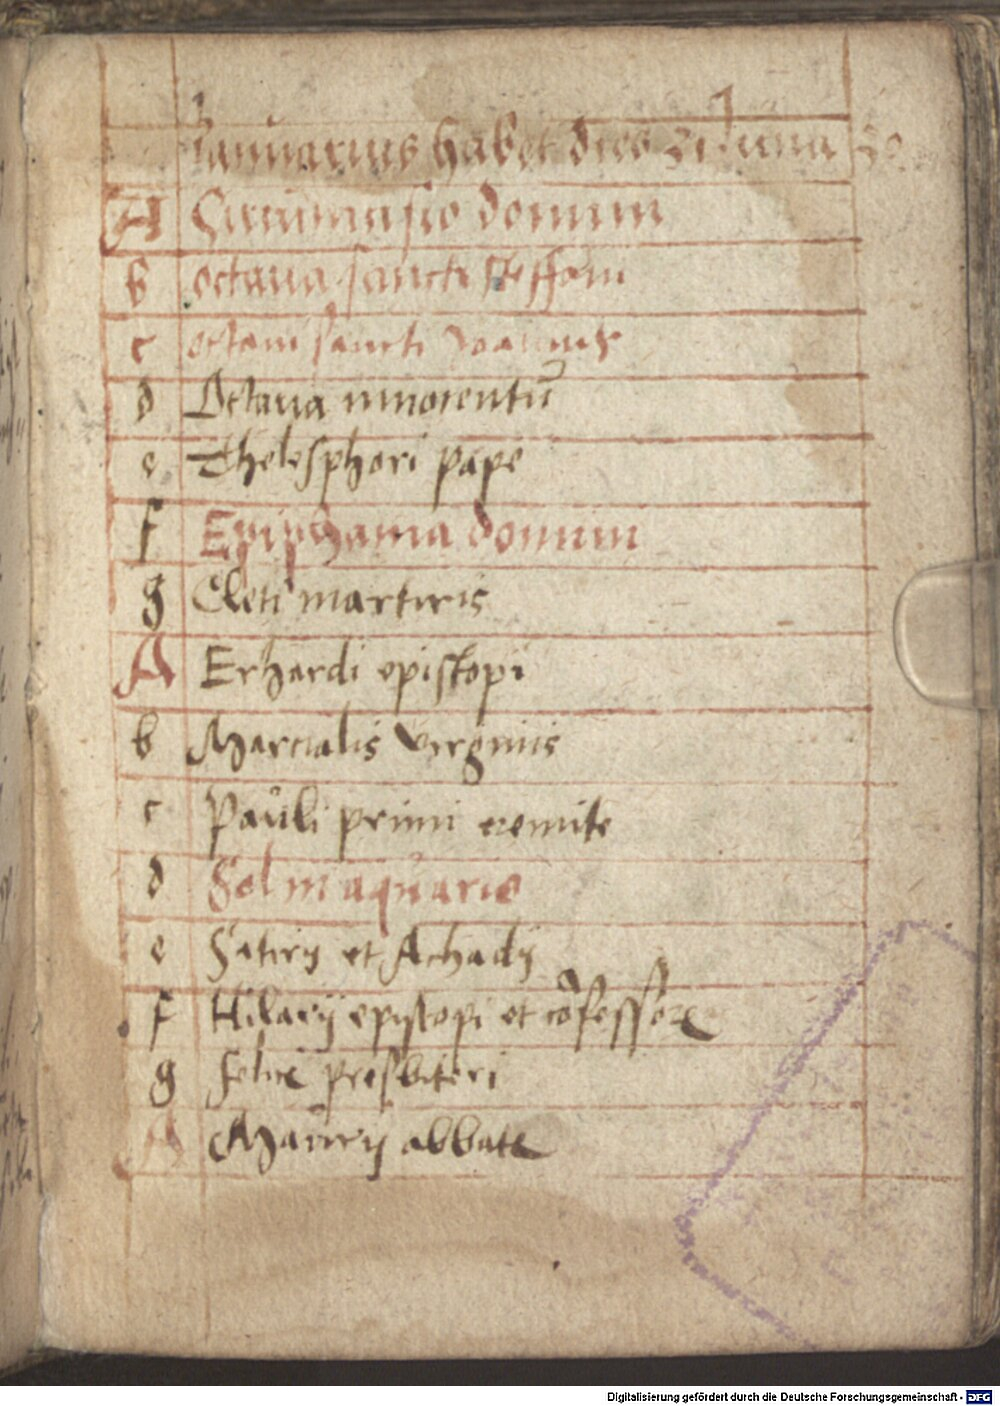 Januarius habet dies 31 luna 30
A Circumcisio domini
b octava sancti steffani
c octavi sancti Joannis
d Octava innocentū
e Thelesphori pape
f Epiphania domini
g Cleti martiris
A Erhardi episcopi
b Marcialis virginis
c Pauli primi eremite
d Sol in aquario
e Satirij et Achadij
f Hilarij episcopi et cōfessore
g felice presbiteri
A Maurij abbate
Digitalisierung gefördert durch die Deutsche Forschungsgemeinschaft - DFG